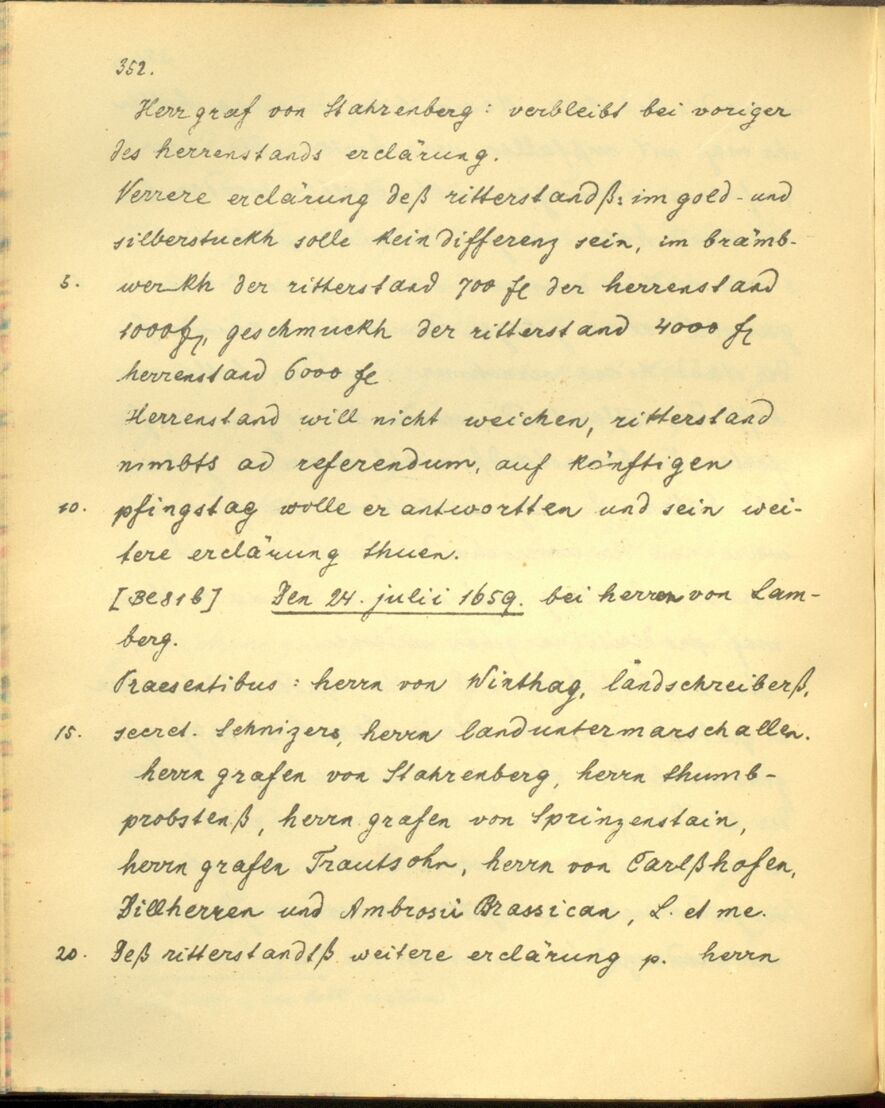 352.
Herr graf von Stahrenberg: verbleibt bei voriger
des herrenstands erclärung.
Verrere erclärung deß ritterstandß: im gold- und
silberstuckh solle kein differenz sein, im brämb-
5. werckh der ritterstand 700 fl der herrenstand
1000 fl, geschmuckh der ritterstand 4000 fl
herrenstand 6000 fl
Herrenstand will nicht weichen, ritterstand
nimbts ad referendum, auf könftigen
10. pfingstag wolle er antwortten und sein wei-
tere erclärung thuen.
[Bl 81b] Den 24. julii 1659. bei herren von Lam-
berg.
Praesentibus: herrn von Winthag, landschreiberß,
15. secret. Schnizers, herrn landuntermarschallen.
herrn grafen von Stahrenberg, herrn thumb-
probstenß, herrn grafen von Sprinzenstain,
herrn grafen Trautsohn, herrn von Carlßhofen,
Dillherren und Ambrosii Brassican, L. et me.
20. Deß ritterstandtß weitere erclärung p. herrn